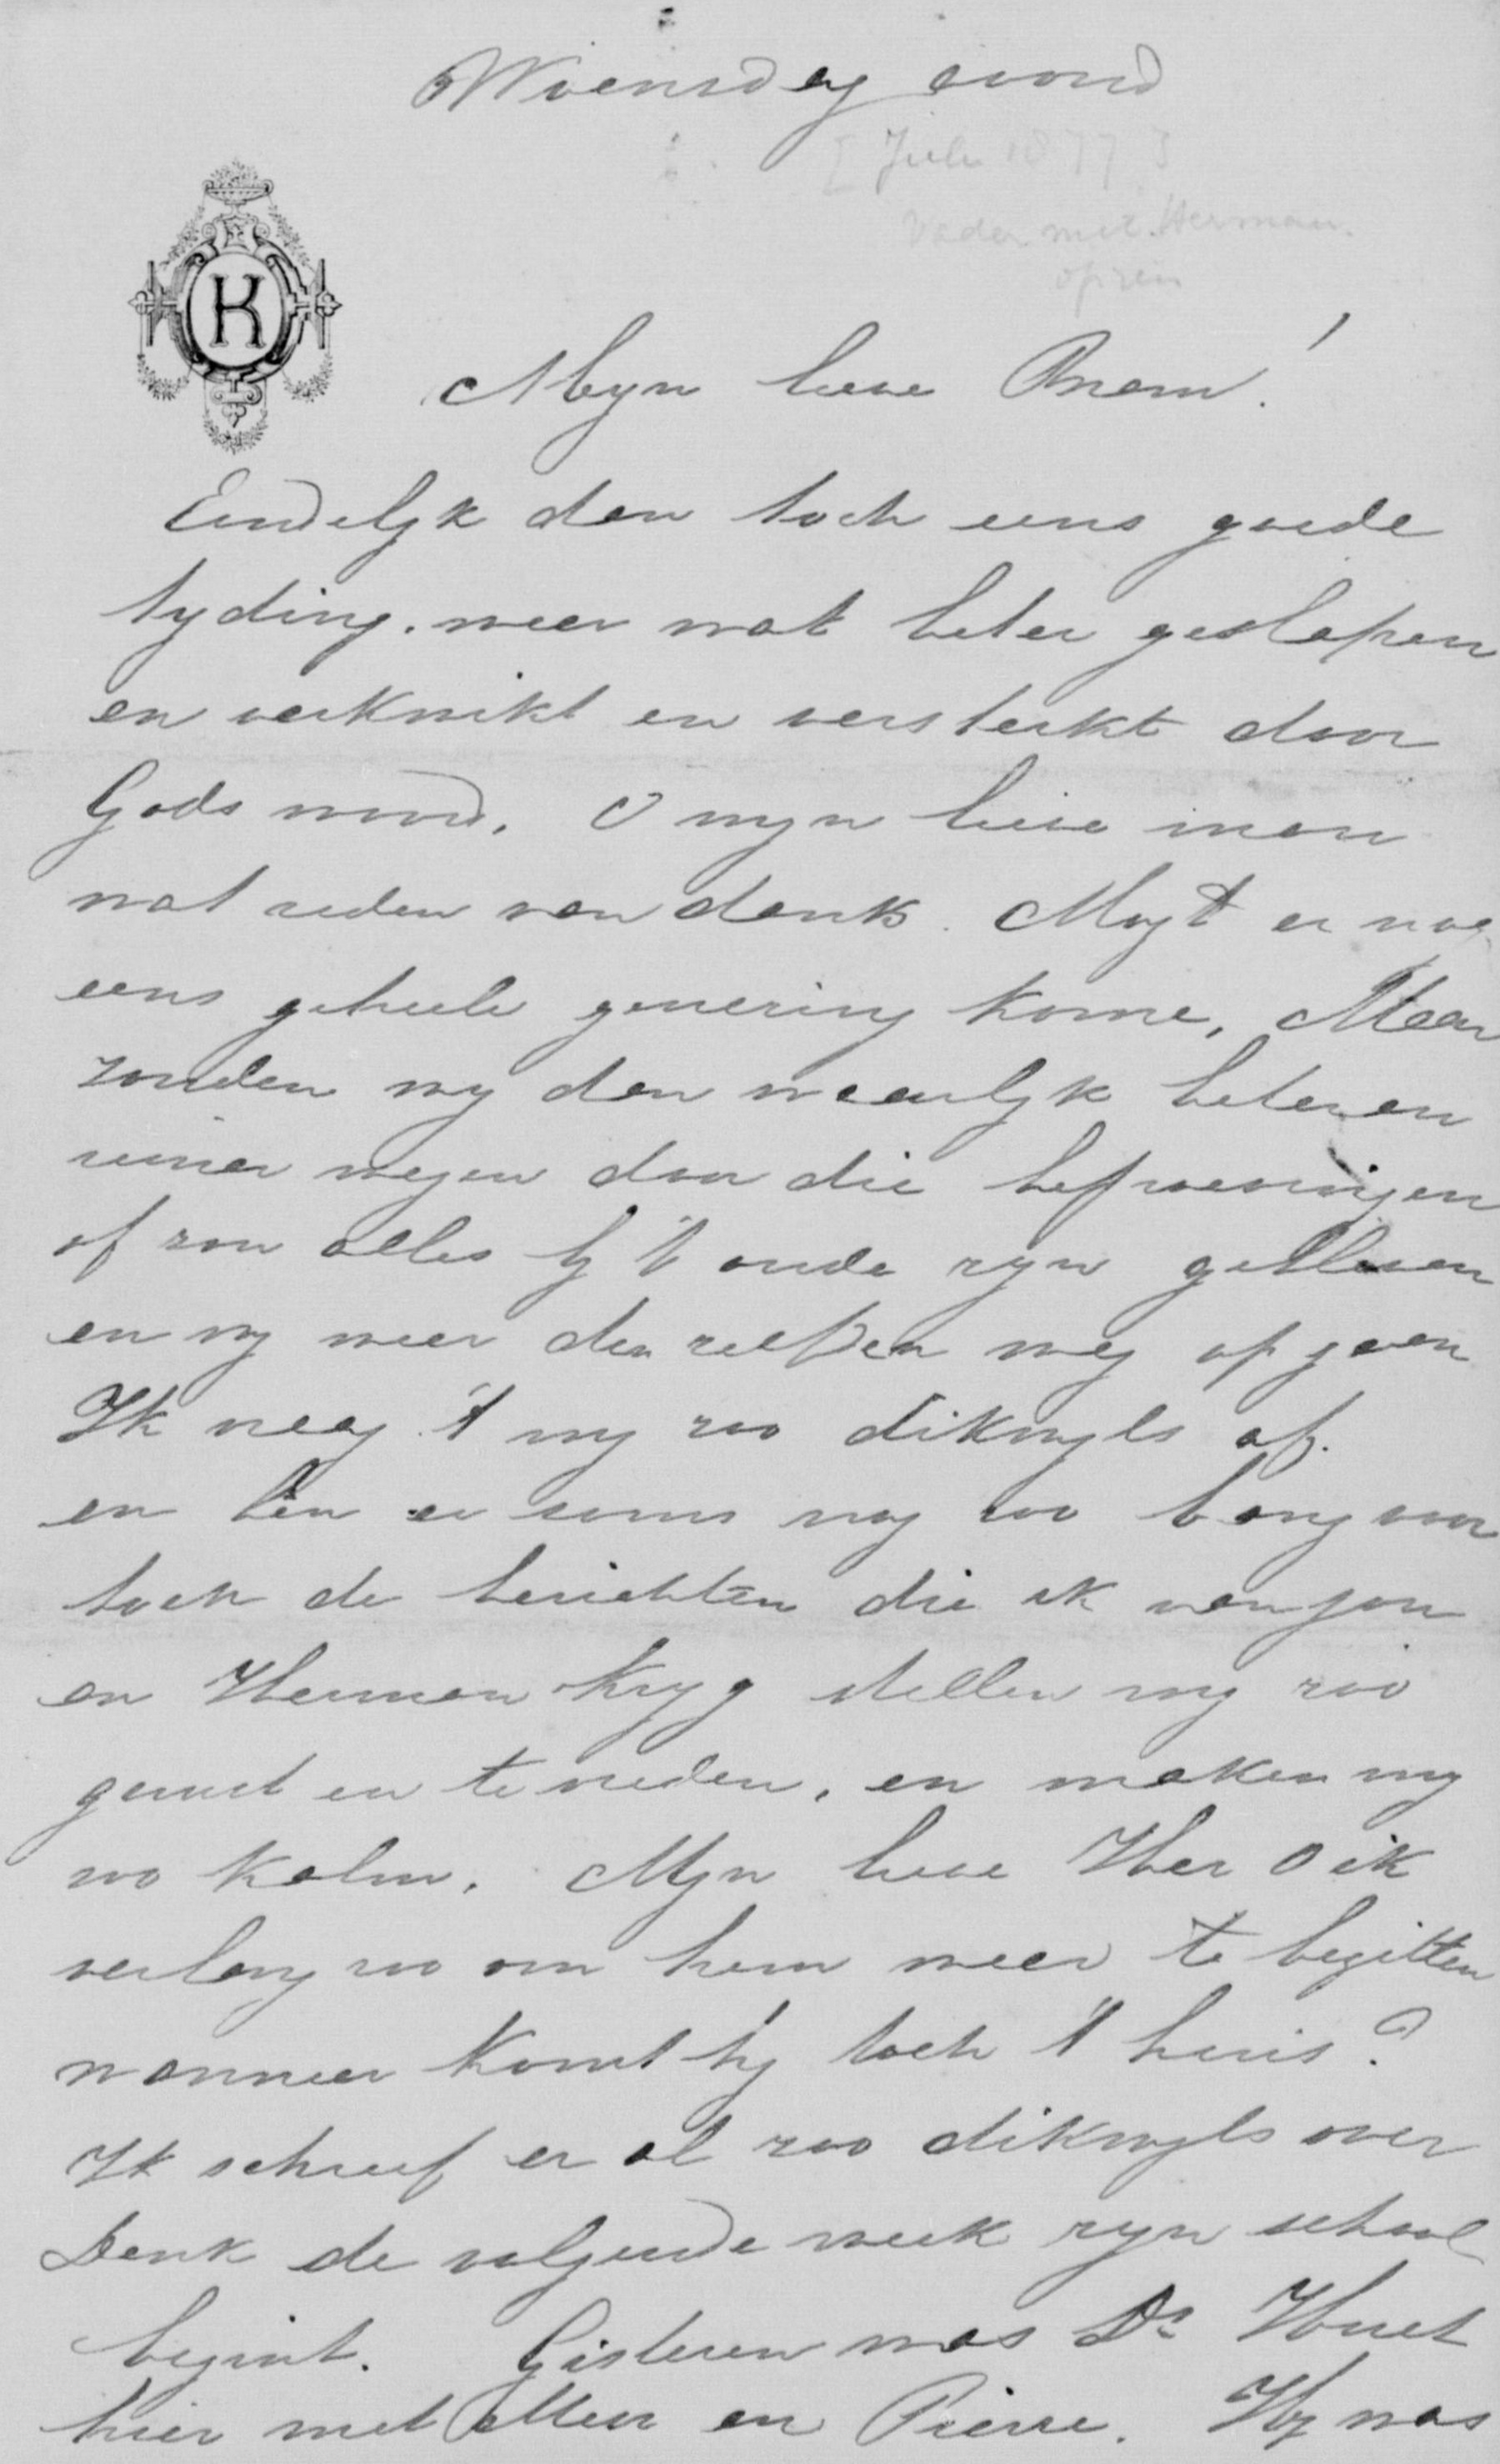 Woensdag avond
[Juli 1877]
Vader met Herman
op reis
K
Myn lieve Bram!
Eindelyk dan toch eens goede
tyding. weer wat beter geslapen
en verkwikt en versterkt door
Gods woord. O myn lieve man
wat reden van dank. Mogt er nog
eens geheele genezing kome, Maar
zouden wy dan waarlyk beter en
reiner wezen door die beproevingen
of zou alles by 't oude zyn gebleven
en wy weer den zelfden weg op gaan
Ik vraag 't my zoo dikwyls af.
en ben er soms nog zoo bang voor
toch de berichten die ik van jou
en Herman kryg stellen my zoo
gerust en te vreden, en maken my
zoo kalm. Myn lieve Her O ik
verlang zoo om hem weer te bezitten
wanneer komt hy toch 't huis?
Ik schreef er al zoo dikwyls over
Denk de volgende week zyn school
begint. Gisteren was Ds Huet
hier met Mevr en Pierre. Hy was